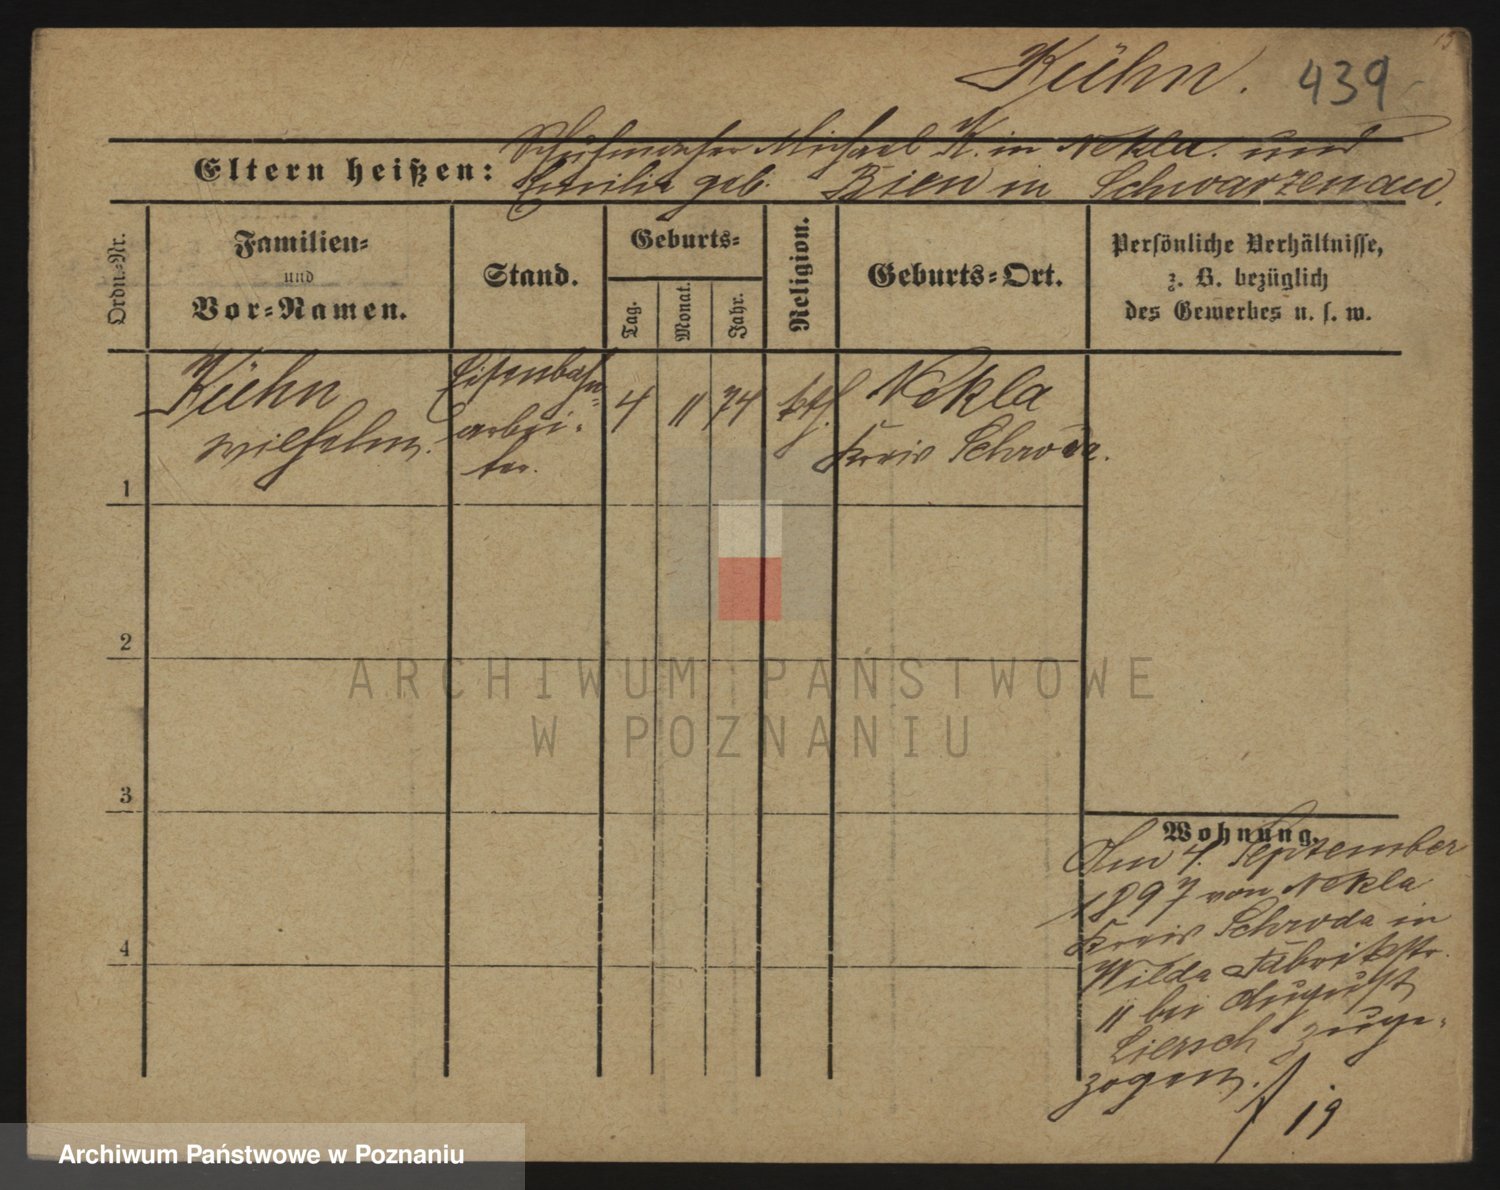 15
Kühn. 439
Eltern heißen: Schuhmacher Michael K. in Nekla. und
Emilie geb. Bien in Schwarzenau.
Ordn.-Nr.
Familien-
und
Vor-Namen.
Stand.
Geburts-
Tag.
Monat.
Jahr.
Religion.
Geburts-Ort.
Persönliche Verhältnisse,
z. B. bezüglich
des Gewerbes u. s. w.
1
Kühn
Wilhelm.
Eisenbahn-
arbei-
ter.
4 11 74
kth.
Nekla
Kreis Schroda.
2
3
4
Wohnung.
Am 4. September
1897 von Nekla
Kreis Schroda in
Wilda Fabrikstr.
11 bei August
Liersch zuge-
zogen.
19
ARCHIWUM PAŃSTWOWE
W POZNANIU
Archiwum Państwowe w Poznaniu